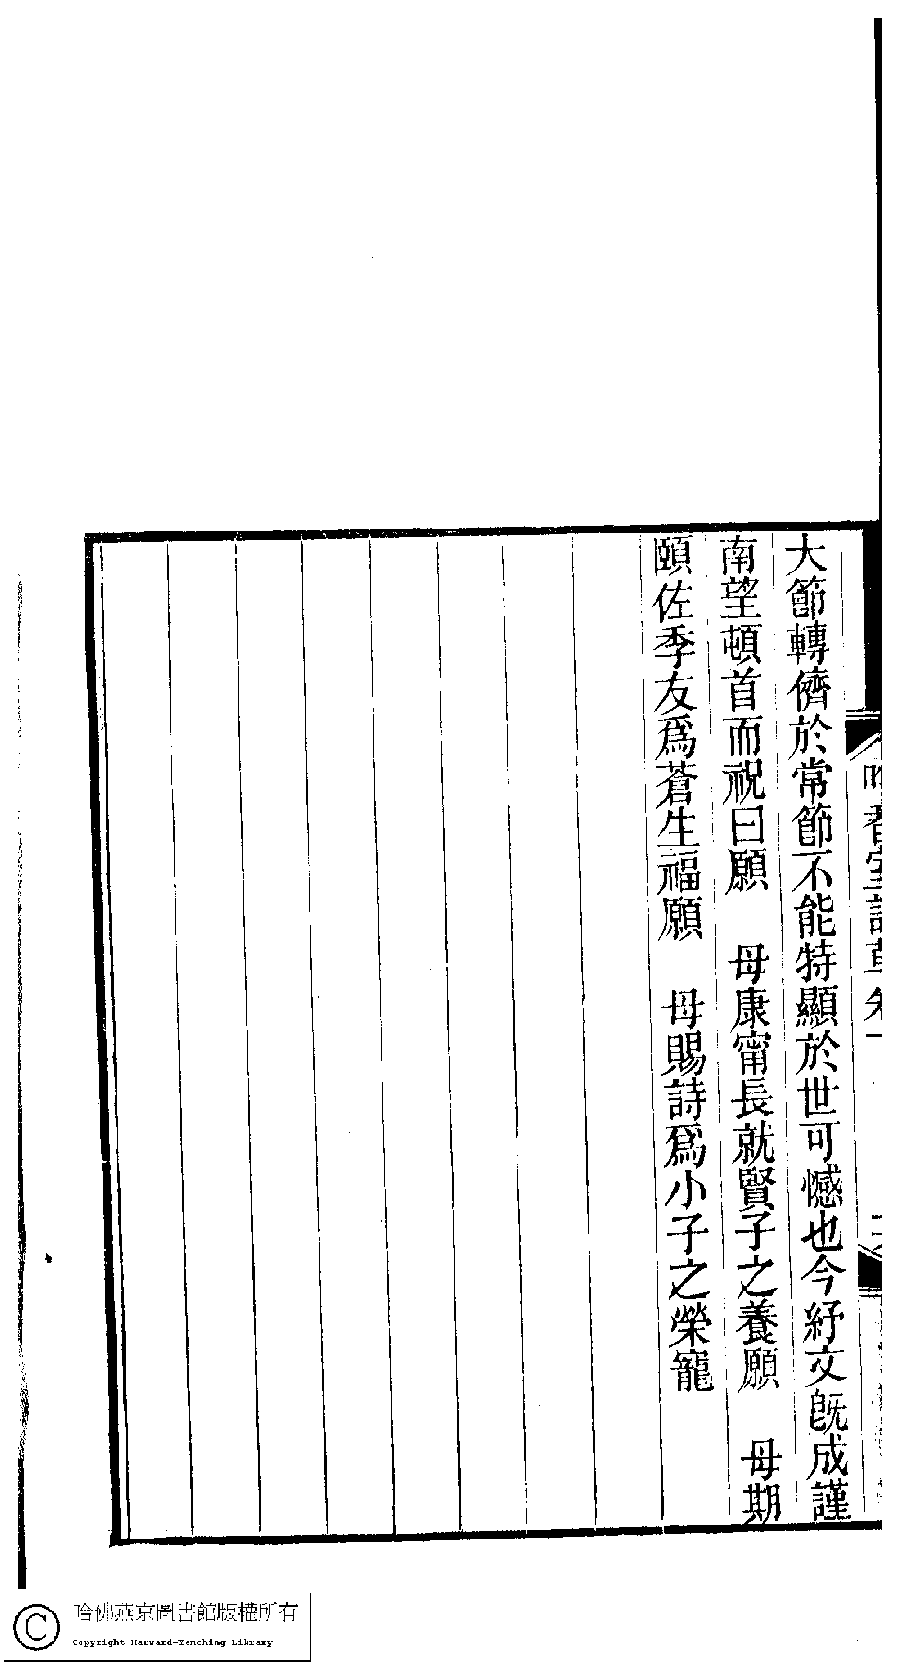 大節轉儕於常節不能特顯於世可憾也今紓文既成謹
南望頓首而祝曰願　母康甯長就賢子之養願　母期
頤佐季友爲蒼生福願　母賜詩爲小子之榮寵
哈佛燕京圖書館版權所有
Copyright Harvard-Yenching Library